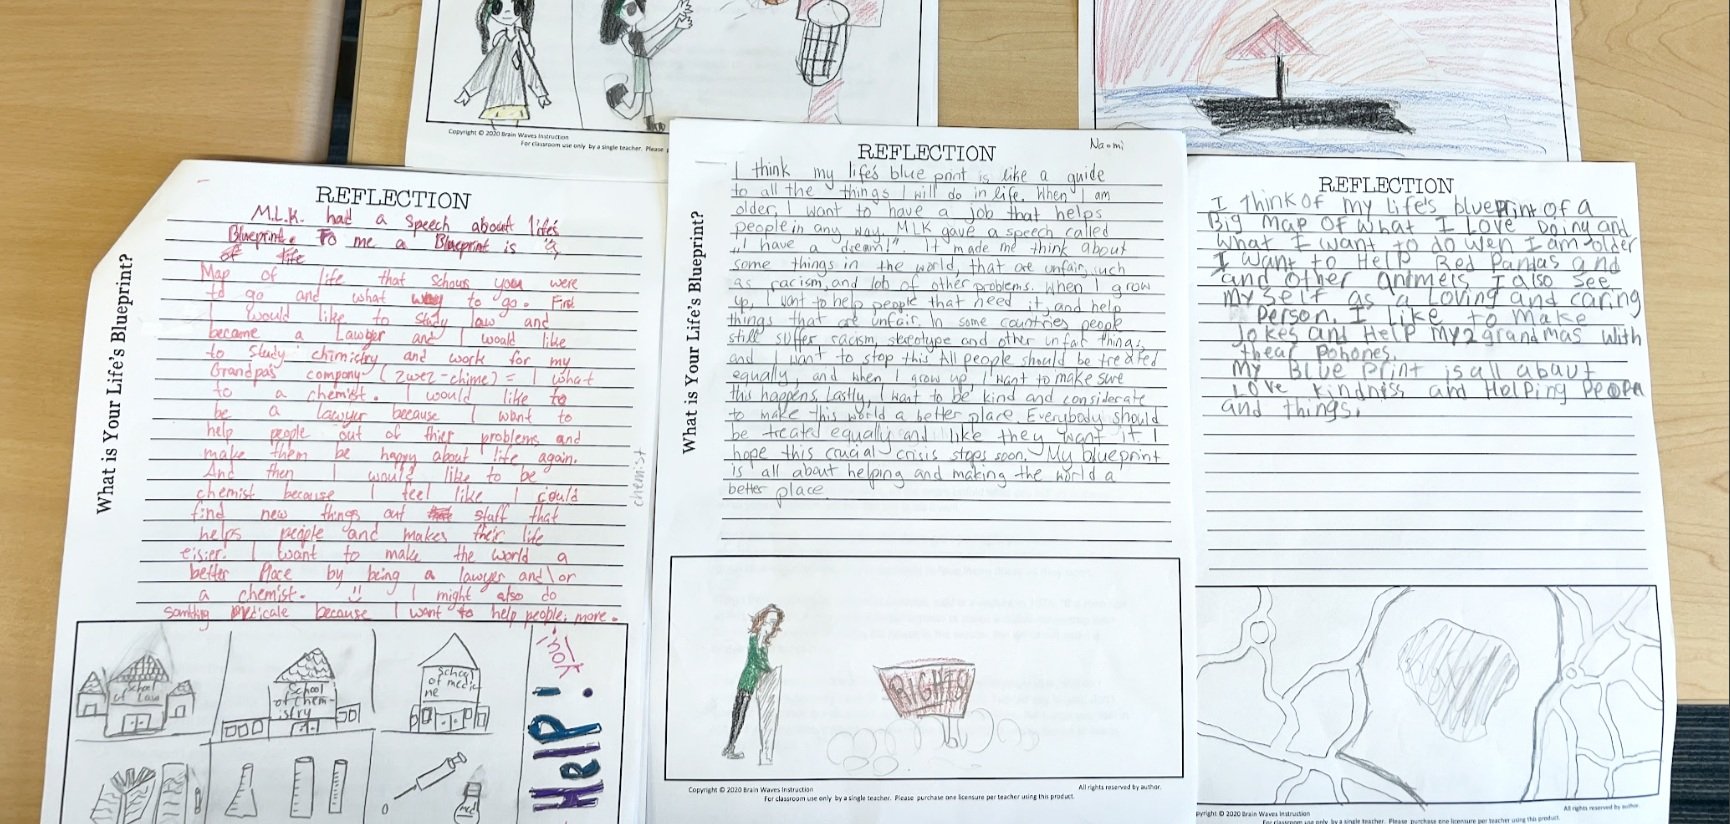 Copyright © 2020 Brain Waves Instruction
For classroom use only by a single teacher. Please
REFLECTION
What is Your Life's Blueprint?
M.L.K. had a speech about life's
Blueprint. To me a Blueprint is a
of life
Map of life that schous you were
to go and what way to go. First
I would like to study law and
became a Lawyer and I would like
to study chimistry and work for my
Grandpa's company (zwez-chime) = I what
to a chemist. I would like to
be a lawyer because I want to
help people out of thier problems and
make them be happy about life again.
And then I would like to be
chemist because I feel like I could
find new things out staff that
helps people and makes their life
eisier. I want to make the world a
better Place by being a lawyer and\or
a chemist. I might also do
sombing medicale because I want to help people more.
chemist
School of Law
School
of chem-
istry
School
of medic
ne
REFLECTION
Naomi
What is Your Life's Blueprint?
I think my life's blue print is like a guide
to all the things I will do in life. When I am
older, I want to have a job that helps
people in any way. MLK gave a speech called
,,I have a dream!" It made me think about
some things in the world, that are unfair, such
as racism, and lob of other problems. When I grow
up, I want to help people that need it, and help
things that are unfair. In some countries people
still suffer racism, stereotype and other unfair things,
and I want to stop this. All people should be treated
equally, and when I grow up, I want to make sure
this happens. Lastly, I want to be kind and considerate
to make this world a better place. Everybody should
be treated equally and like they want it. I
hope this crucial crisis stops soon. My blueprint
is all about helping and making the world a
better place.
RIGHTS
Copyright © 2020 Brain Waves Instruction
All rights reserved by author.
For classroom use only by a single teacher. Please purchase one licensure per teacher using this product.
REFLECTION
I think of my life's blueprint of a
Big map of what I Love Doing and
what I want to do wen I am older
I want to Help Red Pandas and
and other animels I also see
my self as a Loving and caring
person. I like to make
Jokes and Help my 2 grandmas with
thear pohones.
My Blue print is all abaut
Love kindniss am Holping Peopen
and things.
pyright © 2020 Brain Waves Instruction
All rights reserved by author.
For classroom use only by a single teacher. Please purchase one licensure per teacher using this product.